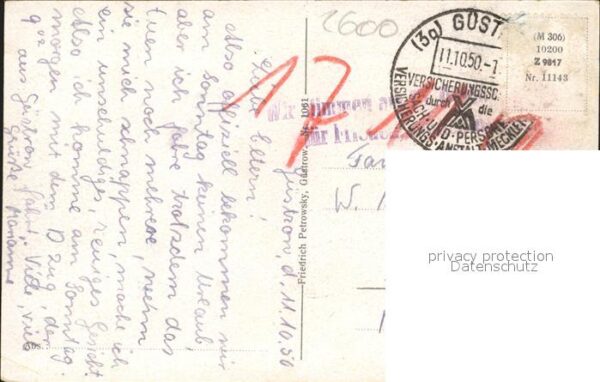 Güstrow, d. 11.10.50
Liebe Eltern!
Also offiziell bekommen wir
am Sonntag keinen Urlaub
aber ich fahre trotzdem das
tuen noch mehrere, wenn
sie mich schnappen, mache ich
ein unschuldiges, reuiges Gesicht
Also ich komme am Sonntag
morgen mit dem D Zug, der
9 02 aus Güstrow fährt. Viele, viele
Grüße Marianne
Abs.
Friedrich Petrowsky, Güstrow Nr. 1061
2600
171
(3a) GÜST
11.10.50.-1
VERSICHERUNGSSC
durch die
SACH-UND-PERSON
VERSICHERUNGS-ANSTALT MECKLEN
(M 306)
10200
Z 9817
Nr. 11143
Fa
W.
privacy protection
Datenschutz